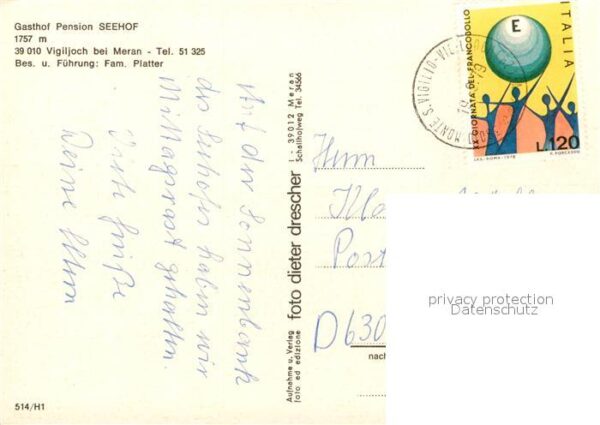 Gasthof Pension SEEHOF
1757 m
39 010 Vigiljoch bei Meran - Tel. 51 325
Bes. u. Führung: Fam. Platter
Auf der Sonnenbank
des Seehofes haben wir
Mittagsrast gehalten.
Viele Grüße
Deine Eltern
514/H1
Aufnahme u. Verlag
foto ed edizione
foto dieter drescher
I - 39012 Meran
Schallhofweg Tel. 34566
MONTE S. VIGILIO-VIGIL
XX GIORNATA DEL FRANCOBOLLO
E
ITALIA
L.120
I.P.S.-ROMA-1978
Herrn
Post
D 630
nach
privacy protection
Datenschutz